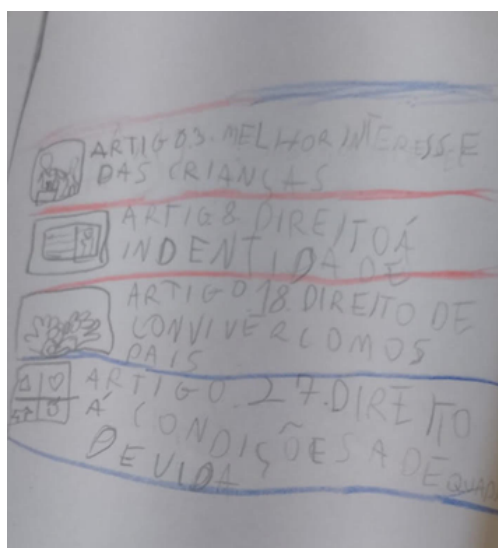 ARTIGO.3. MELHOR INTERESSE
DAS CRIANÇAS
ARTIG 8. DIREITO Á
INDENTIDADE
ARTIGO 18. DIREITO DE
CONVIVER COM OS
PAIS
ARTIGO. 27. DIREITO
Á CONDIÇÕES ADEQUADA
DE VIDA